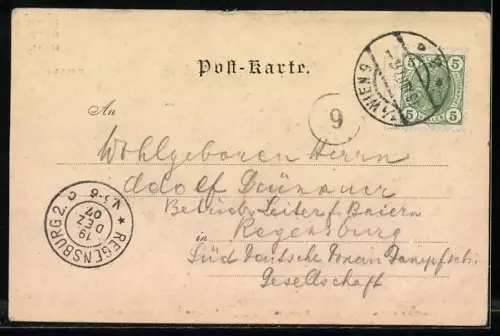 Post-Karte.
1/1 WIEN 9
5 5
5 5
9
An
Wohlgeboren Herrn
Adolf Grünauer
Betriebsleiter f. Baiern
in Regensburg
Süd Deutsche Donau Dampfsch.
Gesellschaft
REGENSBURG 2.
V. 5-6
19
DEZ.
07.